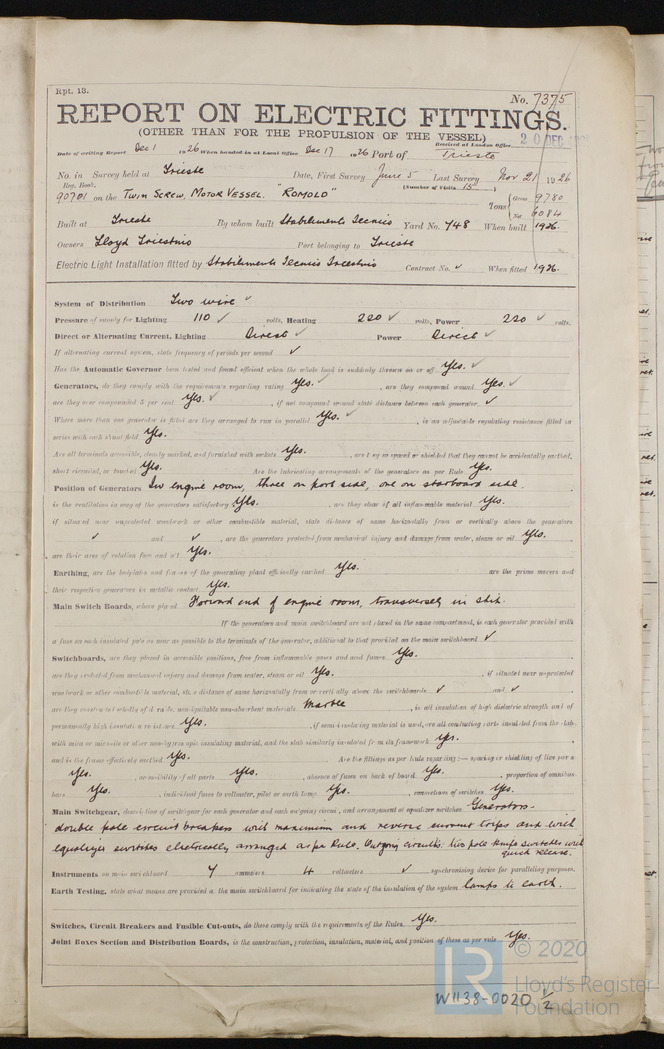 Rpt. 13.
No. 7375
REPORT ON ELECTRIC FITTINGS.
(OTHER THAN FOR THE PROPULSION OF THE VESSEL)
20 DEC
Received at London Office
Date of writing Report Dec 1 1926 When handed in at Local Office Dec 17 1926 Port of Trieste
No. in Survey held at Trieste Date, First Survey June 5 Last Survey Nov 21 1926
Reg. Book. (Number of Visits 15)
90701 on the TWIN SCREW, MOTOR VESSEL. "ROMOLO" Tons Gross 9780
Net 6084
Built at Trieste By whom built Stabilimento Tecnico Yard No. 748 When built 1926
Owners Lloyd Triestino Port belonging to Trieste
Electric Light Installation fitted by Stabilimento Tecnico Triestino Contract No. ✓ When fitted 1926
System of Distribution Two wire ✓
Pressure of supply for Lighting 110 ✓ volts, Heating 220 ✓ volts, Power 220 ✓ volts.
Direct or Alternating Current, Lighting Direct ✓ Power Direct ✓
If alternating current system, state frequency of periods per second ✓
Has the Automatic Governor been tested and found efficient when the whole load is suddenly thrown on or off Yes. ✓
Generators, do they comply with the requirements regarding rating Yes. ✓, are they compound wound Yes. ✓
are they over compounded 5 per cent. Yes. ✓, if not compound wound state distance between each generator ✓
Where more than one generator is fitted are they arranged to run in parallel Yes. ✓, is an adjustable regulating resistance fitted in
series with each shunt field Yes.
Are all terminals accessible, clearly marked, and furnished with sockets Yes., are they so spaced or shielded that they cannot be accidentally earthed,
short circuited, or touched Yes. Are the lubricating arrangements of the generators as per Rule Yes.
Position of Generators In engine room, three on port side, one on starboard side.
is the ventilation in way of the generators satisfactory Yes., are they clear of all inflammable material Yes.
if situated near unprotected woodwork or other combustible material, state distance of same horizontally from or vertically above the generators
✓ and ✓, are the generators protected from mechanical injury and damage from water, steam or oil Yes.
are their axes of rotation fore and aft Yes.
Earthing, are the bedplates and frames of the generating plant efficiently earthed Yes. are the prime movers and
their respective generators in metallic contact Yes.
Main Switch Boards, where placed Forward end of engine room, transversely in ship.
If the generators and main switchboard are not placed in the same compartment, is each generator provided with
a fuse on each insulated pole as near as possible to the terminals of the generator, additional to that provided on the main switchboard ✓
Switchboards, are they placed in accessible positions, free from inflammable gases and acid fumes Yes.
are they protected from mechanical injury and damage from water, steam or oil Yes., if situated near unprotected
woodwork or other combustible material, state distance of same horizontally from or vertically above the switchboards ✓ and ✓
are they constructed wholly of durable, non-ignitable non-absorbent materials Marble, is all insulation of high dielectric strength and of
permanently high insulation resistance Yes., if semi-insulating material is used, are all conducting parts insulated from the slab
with mica or micanite or other non-hygroscopic insulating material, and the slab similarly insulated from its framework Yes.
and is the frame effectively earthed Yes. Are the fittings as per Rule regarding:— spacing or shielding of live parts
Yes., accessibility of all parts Yes., absence of fuses on back of board Yes., proportion of omnibus
bars Yes., individual fuses to voltmeter, pilot or earth lamp Yes., connections of switches Yes.
Main Switchgear, description of switchgear for each generator and each outgoing circuit, and arrangement of equalizer switches Generators-
double pole circuit breakers with maximum and reverse current trips and with
equalizer switches electrically arranged as per Rule. Outgoing circuits: two pole knife switches with
quick release.
Instruments on main switchboard 7 ammeters 4 voltmeters ✓ synchronising device for paralleling purposes.
Earth Testing, state what means are provided on the main switchboard for indicating the state of the insulation of the system lamps to earth.
Switches, Circuit Breakers and Fusible Cut-outs, do these comply with the requirements of the Rules Yes.
Joint Boxes Section and Distribution Boards, is the construction, protection, insulation, material, and position of these as per rule Yes.
© 2020
Lloyd's Register
Foundation
W1138-0020 1/2